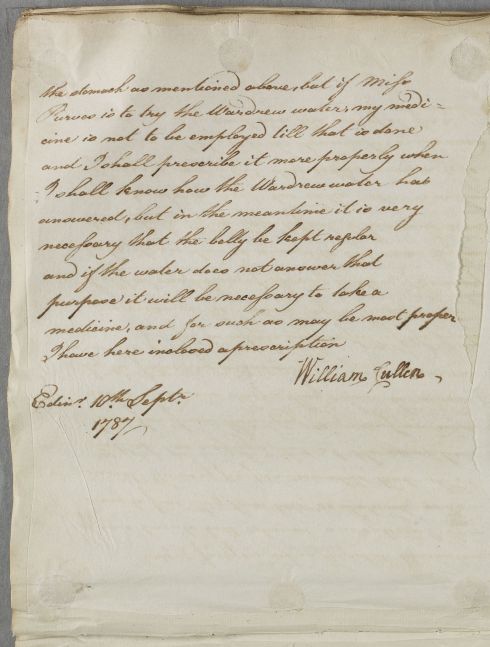 the stomach as mentioned above, but if Miss
Purves is to try the Wardrew water, my medi=
cine is not to be employed till that is done
and I shall prescribe it more properly when
I shall know how the Wardrew water has
answered, but in the meantime it is very
necessary that the belly be kept reglar
and if the water does not answer that
purpose it will be necessary to take a
medicine, and for such as may be most proper
I have here inclosed a prescription
William Cullen
Edinr. 10th. Septr.
1787